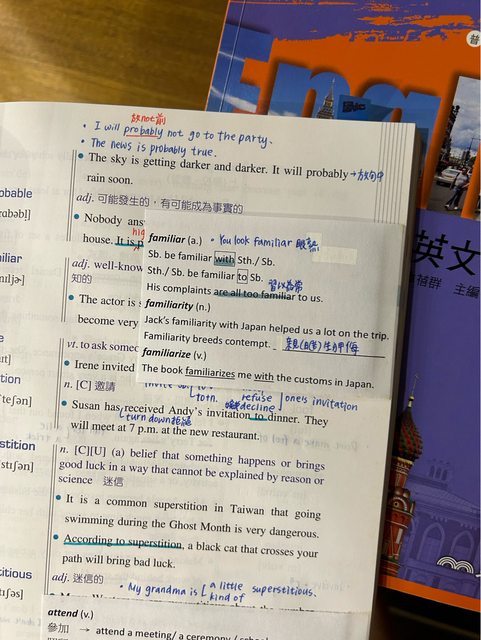 放not前
• I will probably not go to the party.
• The news is probably true.
• The sky is getting darker and darker. It will probably → 放句中
rain soon.
adj. 可能發生的，有可能成為事實的
• Nobody ans
house. It is p
familiar (a.) • You look familiar 眼熟
Sb. be familiar with Sth./ Sb.
Sth./ Sb. be familiar to Sb.
習以為常
His complaints are all too familiar to us.
familiarity (n.)
Jack's familiarity with Japan helped us a lot on the trip.
Familiarity breeds contempt.
familiarize (v.)
The book familiarizes me with the customs in Japan.
adj. well-know
知的
• The actor is s
become very
vt. to ask someo
• Irene invited
n. [C] 邀請
refuse
decline
one's invitation
turn down 拒絕
• Susan has received Andy's invitation to dinner. They
will meet at 7 p.m. at the new restaurant.
n. [C][U] (a) belief that something happens or brings
good luck in a way that cannot be explained by reason or
science 迷信
• It is a common superstition in Taiwan that going
swimming during the Ghost Month is very dangerous.
• According to superstition, a black cat that crosses your
path will bring bad luck.
adj. 迷信的
• My grandma is a little superstitious.
kind of
attend (v.)
參加 → attend a meeting/ a ceremony /
obable
iliar
tion
stition
titious
普
英文
主編